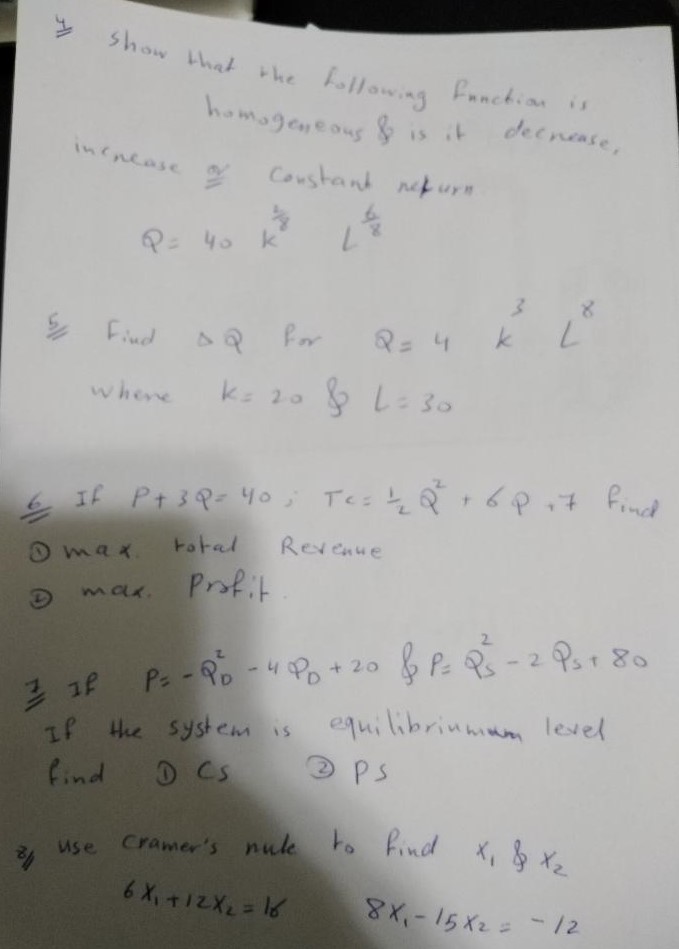 4 show that the following function is
homogeneous & is it decrease,
increase or constant return
Q = 40 k^{2/8} L^{6/8}
5 Find ΔQ for Q = 4 k^3 L^8
where k = 20 & L = 30
6 If P + 3Q = 40 ; Tc = 1/2 Q^2 + 6Q + 7 find
① max. total Revenue
② max. Profit.
7 If P = -Q_D^2 - 4Q_D + 20 & P = Q_S^2 - 2Q_S + 80
If the system is equilibriumum level
find ① CS ② PS
8 use cramer's rule to find x_1 & x_2
6X_1 + 12X_2 = 16 8X_1 - 15X_2 = -12